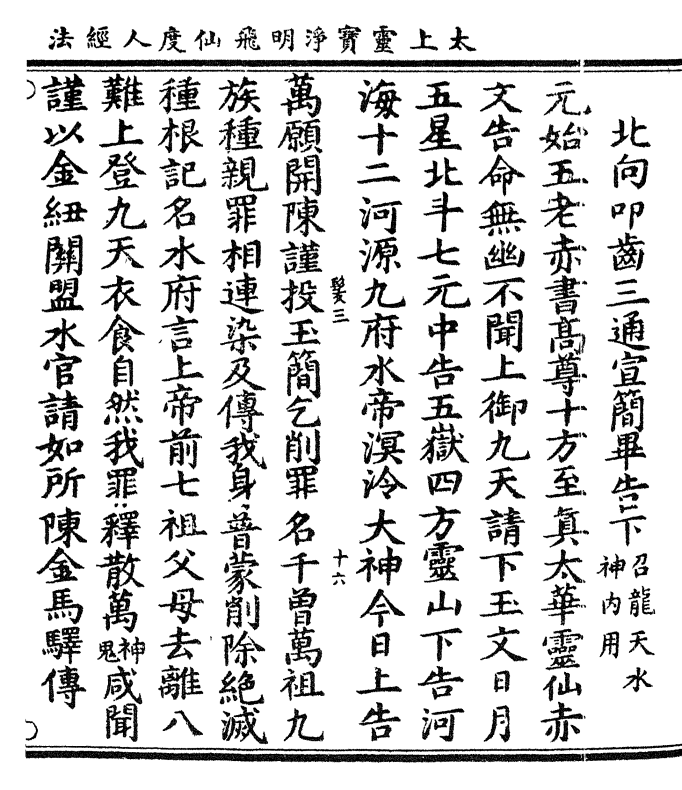 太上靈寶淨明飛仙度人經法
北向叩齒三通宣簡畢告下召龍天水神內用
元始五老赤書高尊十方至眞太華靈仙赤
文告命無幽不聞上御九天請下玉文日月
五星北斗七元中告五嶽四方靈山下告河
海十二河源九府水帝溟泠大神今日上告
髮三
十六
萬願開陳謹投玉簡乞削罪名千曾萬祖九
族種親罪相連染及傳我身普蒙削除絕滅
種根記名水府言上帝前七祖父母去離八
難上登九天衣食自然我罪釋散萬神鬼咸聞
謹以金紐關盟水官請如所陳金馬驛傳